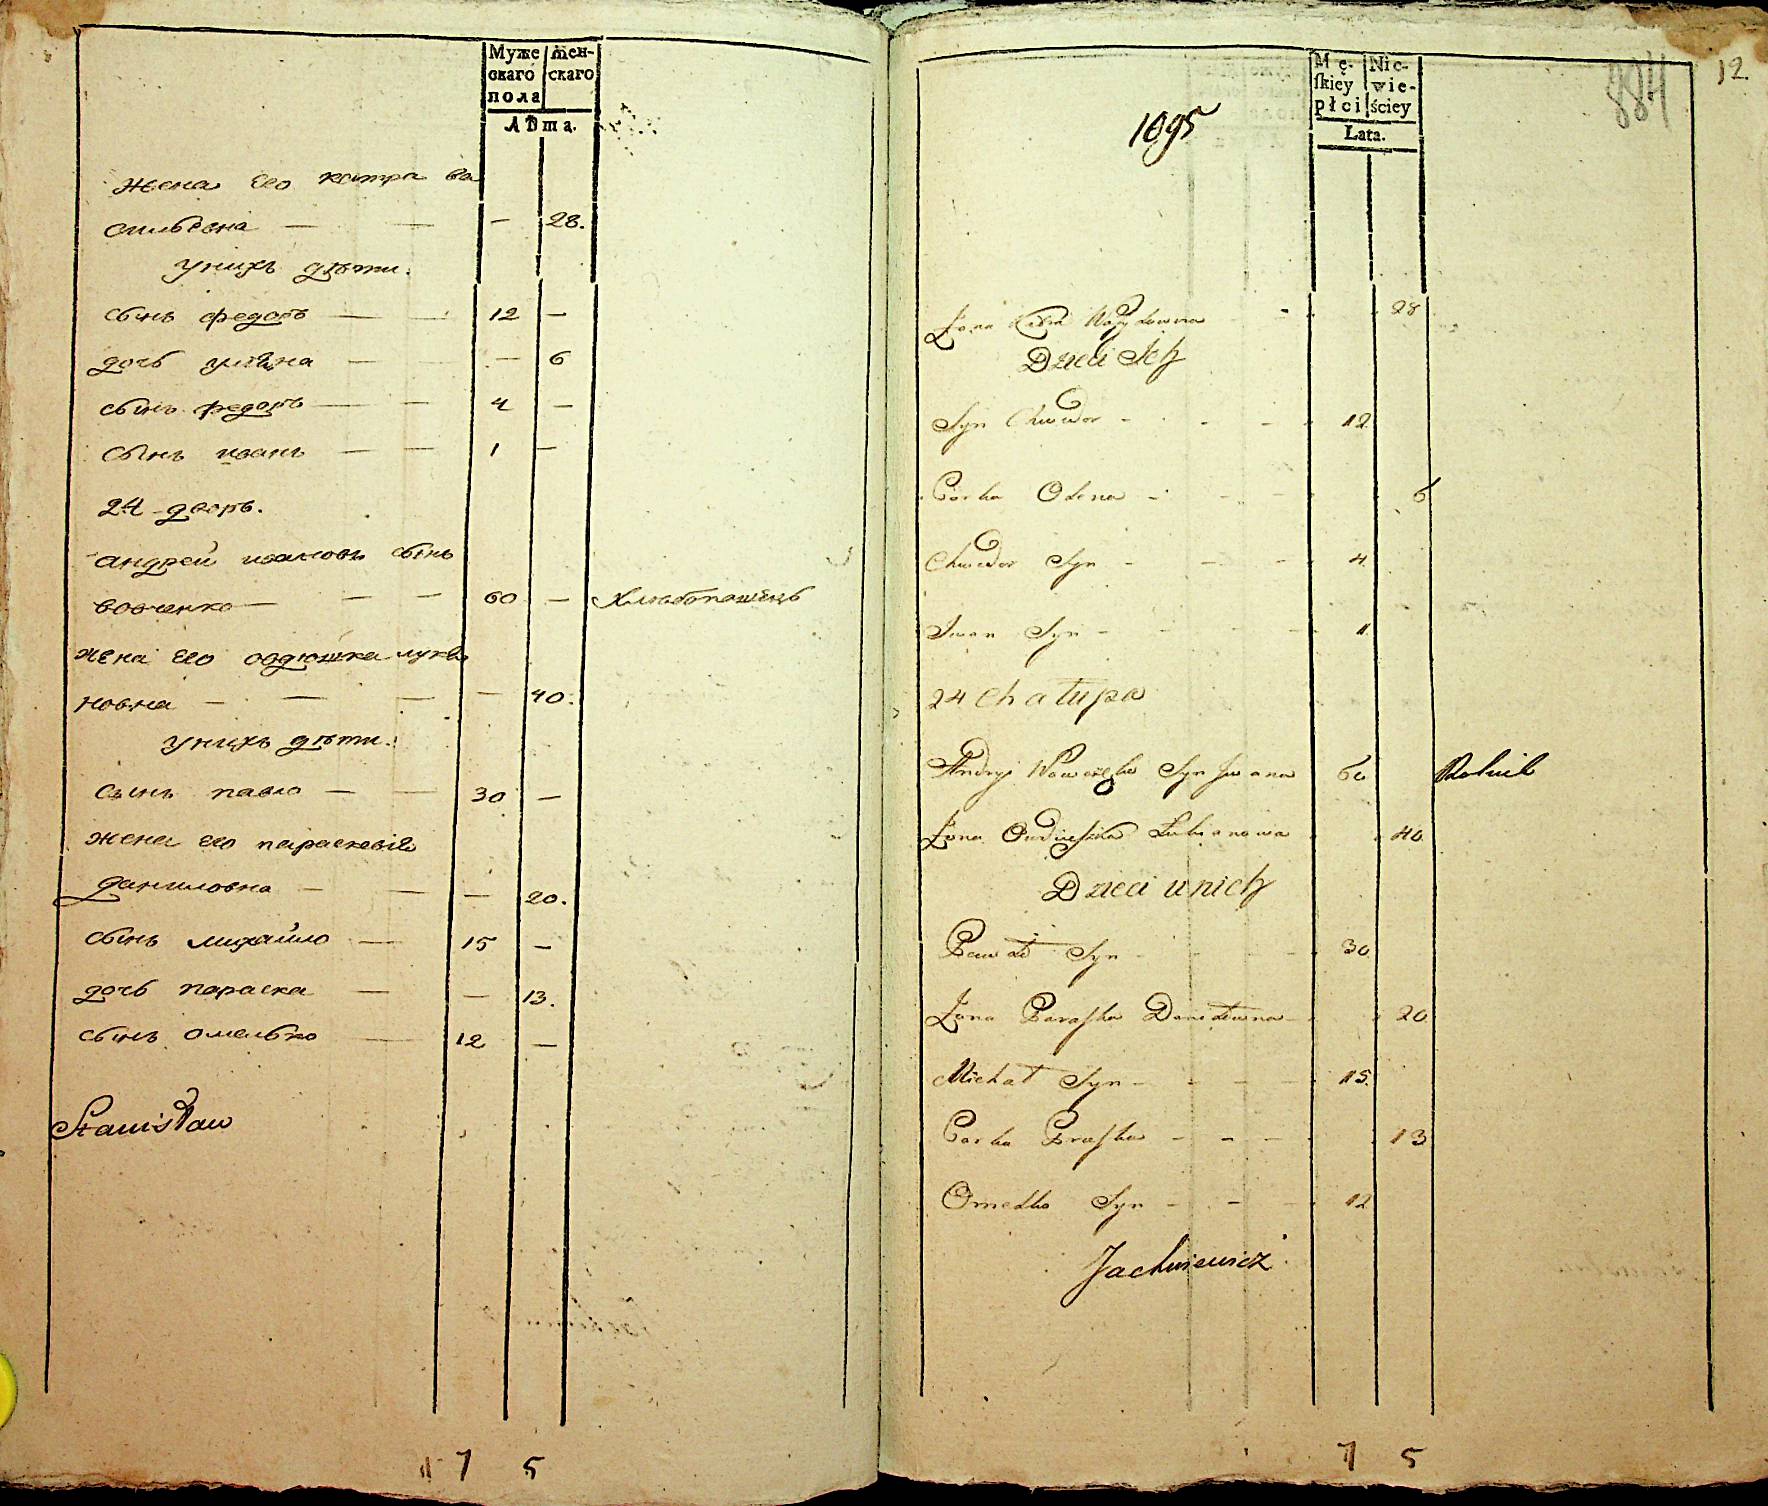 Муже женскаго
скаго
пола
Лѣта.
жена его катра ва
сильевна — — — 28.
унихъ дѣти.
сынъ федоръ — — 12 —
дочь улїана — — 6
сынъ федоръ — — 4 —
сынъ иванъ — — 1 —
24 дворъ.
андрей ивановъ сынъ
вовченко — — — 60 — хлѣбопашецъ
жена его овдюшка лукя
новна — — — — 40.
унихъ дѣти.
сынъ павло — — 30 —
жена его параскевія
даниловна — — — 20.
сынъ михайло — 15 —
дочь параска — — 13.
сынъ омелько — 12 —
Stanisław
7 5
884
12
1095
Mę- Nie-
skiey wie-
płci ściey
Lata.
Żona Katra Wasylowna 28
Dzieci Ich
Syn Chwedor 12
Corka Olena 6
Chwedor Syn 4
Iwan Syn 1
24 Chałupa
Andryi Wowczęko Syn Jwana 60 Rolnik
Żona Owdiuszka Lukianowa 40
Dzieci u nich
Pawło Syn 30
Żona Paraska Daniłowna 20
Michał Syn 15
Corka Praska 13
Omelko Syn 12
Jachniewicz
7 5